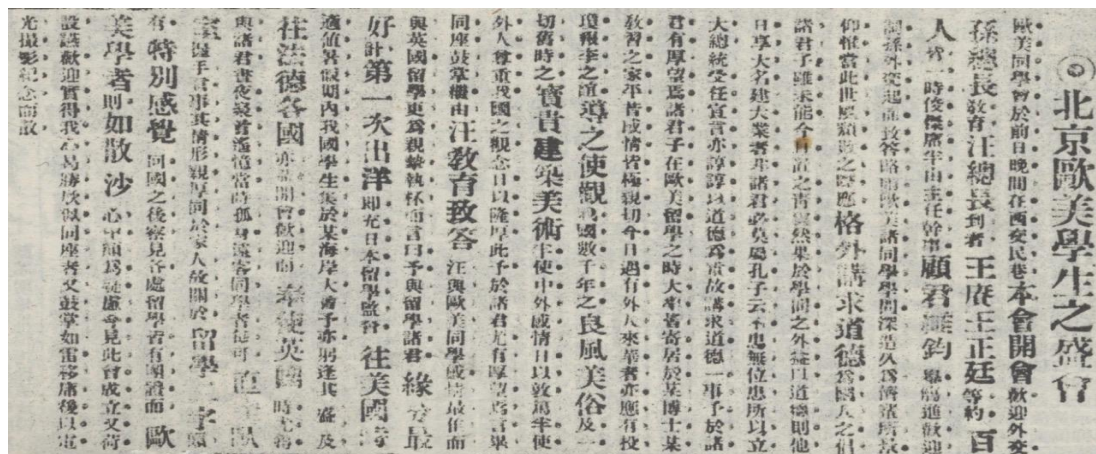 ◎北京歐美學生之盛會
歐美同學會於前日晚間在西交民巷本會開會歡迎外交
孫總長敎育汪總長到者王庚王正廷等約百
人皆一時俊傑席半由主任幹事顧君鈞舉觴進歡迎
詞孫外交起而致答略謂歐美諸同學學問深造久爲儕輩所景
仰惟當此世風頹敗之際應格外講求道德爲國人之倡
諸君子雖未能今日置之靑雲然果於學問之外益以道德則他
日享大名建大業者非諸君必莫屬孔子云不患無位患所以立
大總統受任宣言亦諄諄以道德爲重故講求道德一事予於諸
君有厚望焉諸君子在歐美留學之時大率皆寄居於某博士某
敎習之家平昔感情皆極親切今日遇有外人來華者亦應有投
瓊報李之誼導之使觀我國數千年之良風美俗及一
切舊時之寶貴建築美術半使中外感情日以敦篤半使
外人尊重我國之觀念日以隆厚此予於諸君尤有厚望焉言畢
同座鼓掌繼由汪敎育致答汪與歐美同學感情最佳而
與英國留學更爲親摯執杯而言曰予與留學諸君緣分最
好計第一次出洋即充日本留學監督往美國時
適値暑假期內我國學生集於某海岸大會予亦躬逢其盛及
往法德各國亦開會歡迎而奉使英國時
與諸君晝夜聚首遙憶當時孤身遠客同學者
室握手言事其情形親厚同於家人故關於留學二字
有特別感覺回國之後察見各處留學皆有團體而歐
美學者則如散沙心中頗爲疑慮今見此會成立又荷
設讌歡迎實得我心曷勝欣佩同座者又鼓掌如雷移席後以電
光撮影紀念而散